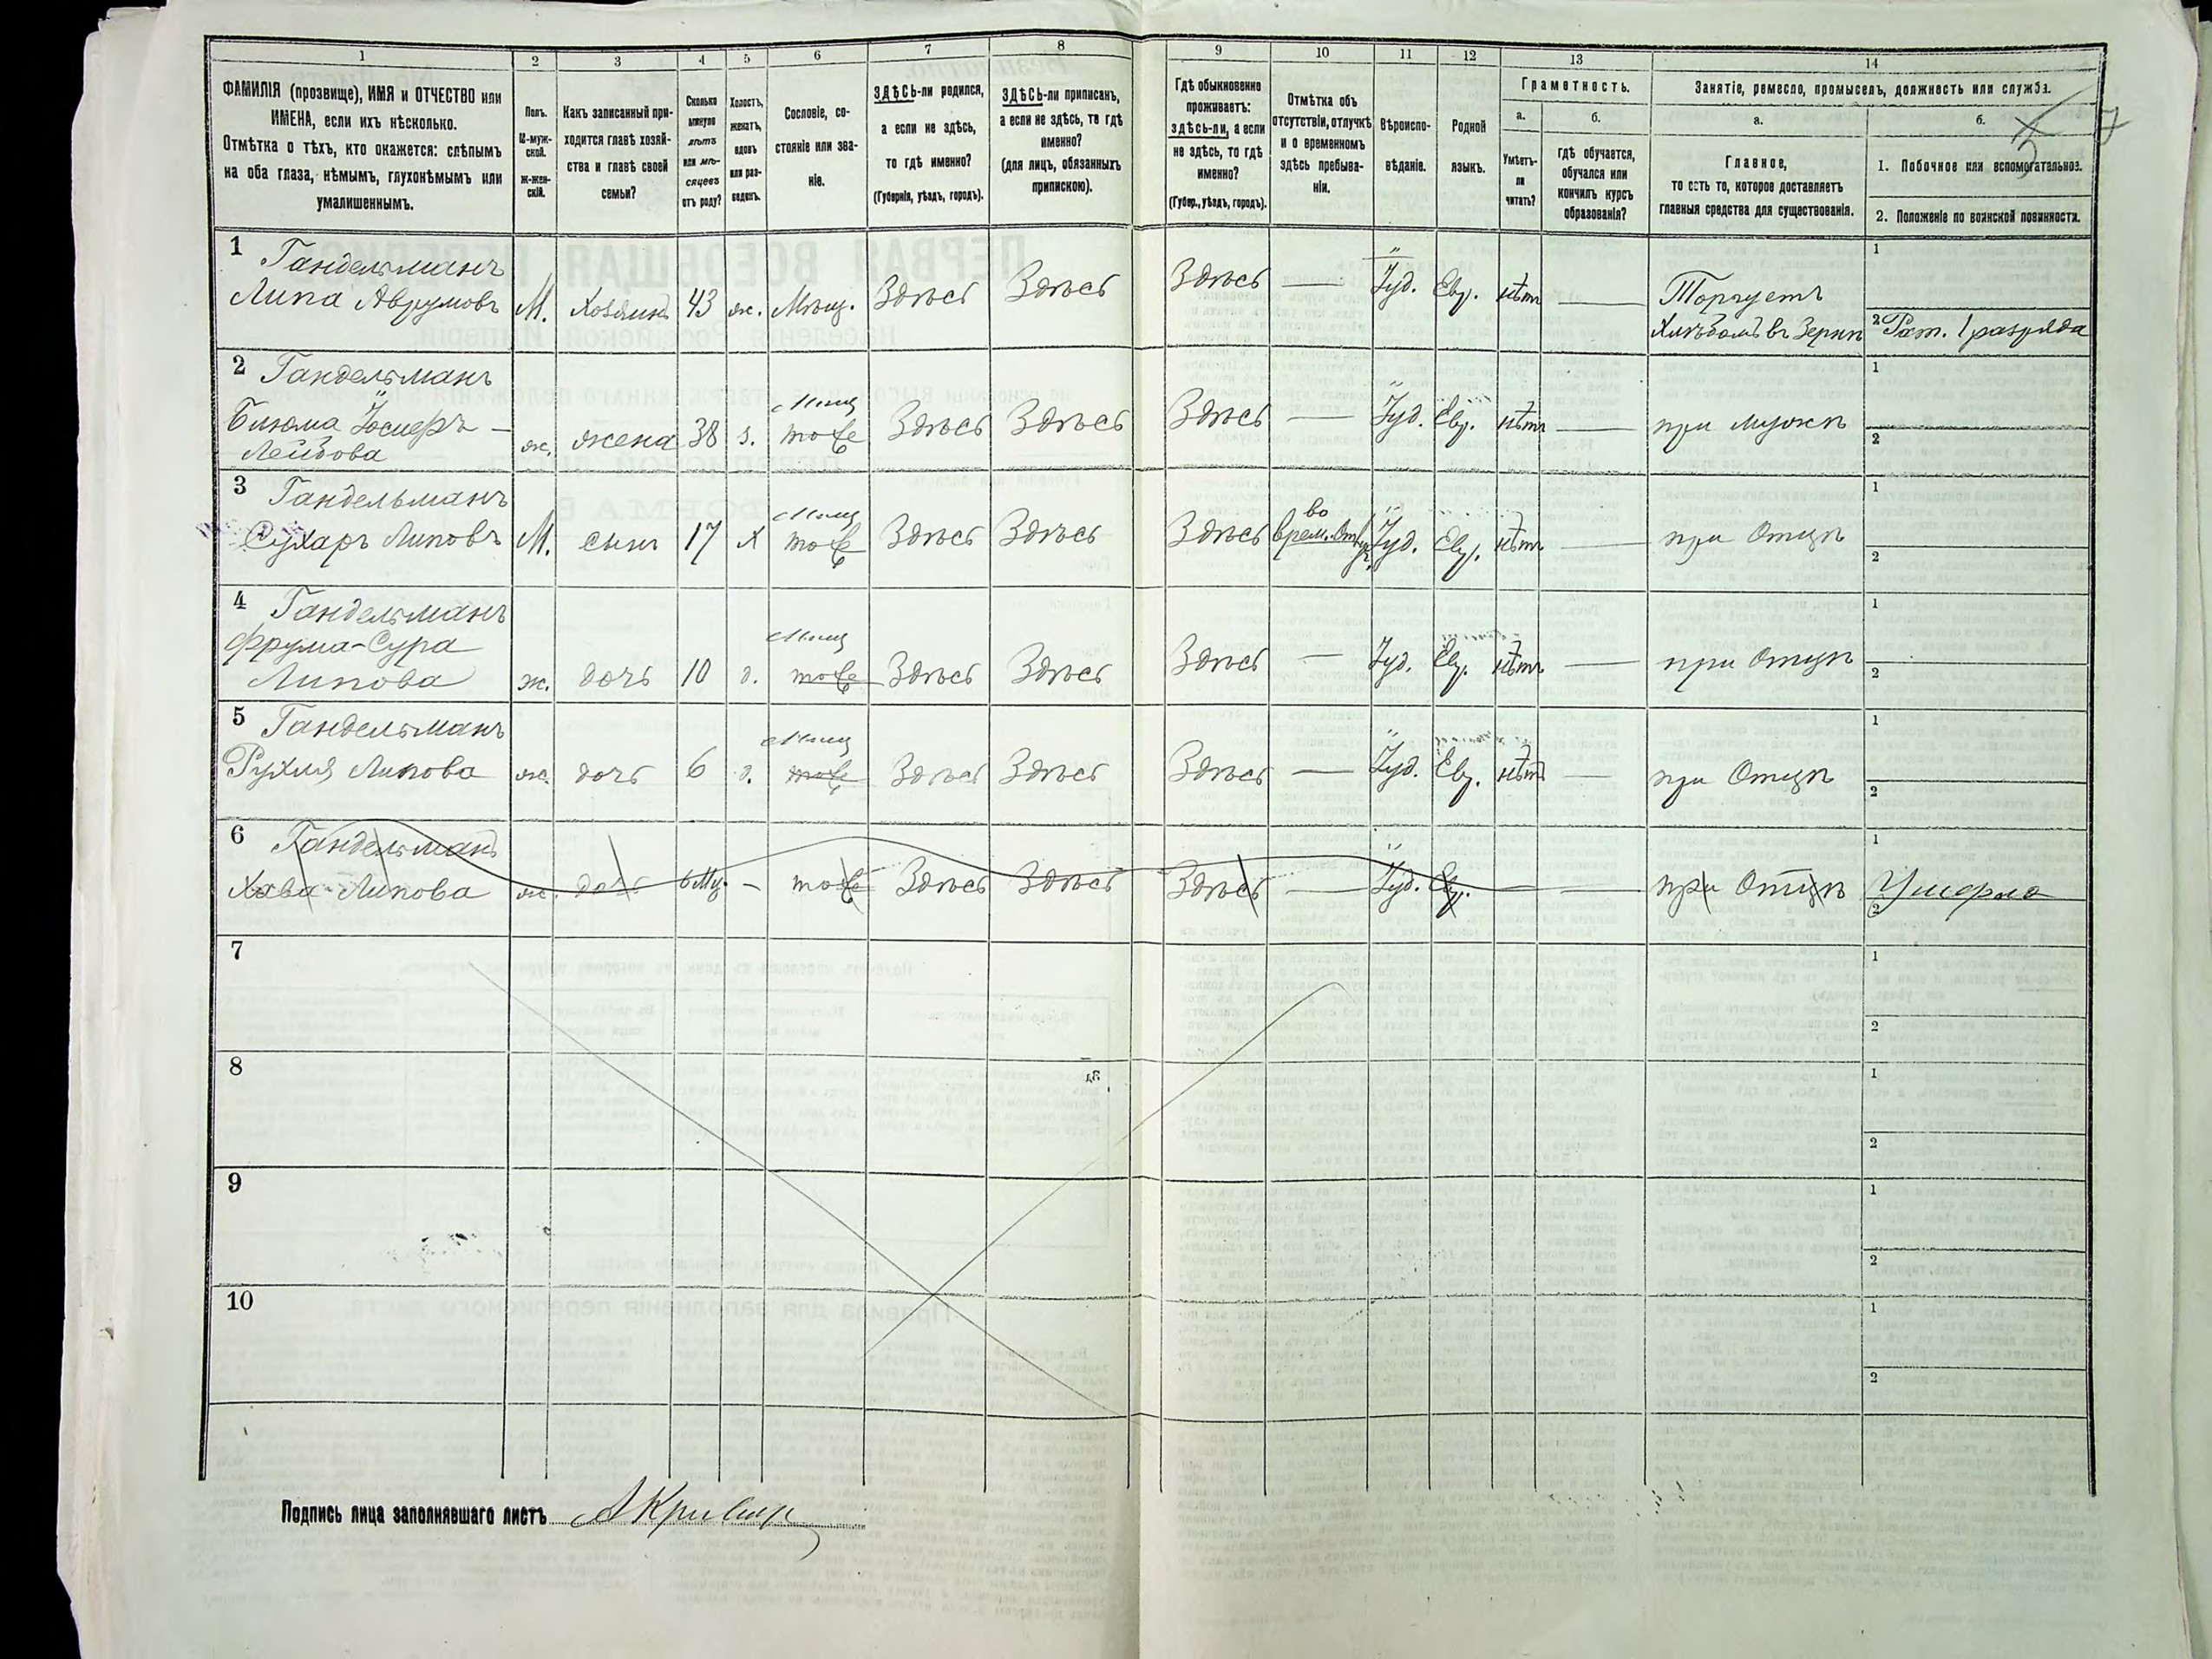 1 2 3 4 5 6 7 8 9 10 11 12 13 14
ФАМИЛІЯ (прозвище), ИМЯ и ОТЧЕСТВО или
ИМЕНА, если ихъ нѣсколько.
Отмѣтка о тѣхъ, кто окажется: слѣпымъ
на оба глаза, нѣмымъ, глухонѣмымъ или
умалишеннымъ.
Полъ.
М-муж-
ской.
Ж-жен-
скій.
Какъ записанный при-
ходится главѣ хозяй-
ства и главѣ своей
семьи?
Сколько
минуло
лѣтъ
или мѣ-
сяцевъ
отъ роду?
Холостъ,
женатъ,
вдовъ
или раз-
веденъ.
Сословіе, со-
стояніе или зва-
ніе.
ЗДѢСЬ-ли родился,
а если не здѣсь,
то гдѣ именно?
(Губернія, уѣздъ, городъ).
ЗДѢСЬ-ли приписанъ,
а если не здѣсь, то гдѣ
именно?
(для лицъ, обязанныхъ
припискою).
Гдѣ обыкновенно
проживаетъ:
здѣсь-ли, а если
не здѣсь, то гдѣ
именно?
(Губер., уѣздъ, городъ).
Отмѣтка объ
отсутствіи, отлучкѣ
и о временномъ
здѣсь пребыва-
ніи.
Вѣроиспо-
вѣданіе.
Родной
языкъ.
Грамотность.
а.
Умѣетъ-
ли
читать?
б.
гдѣ обучается,
обучался или
кончилъ курсъ
образованія?
Занятіе, ремесло, промыселъ, должность или служба.
а.
Главное,
то есть то, которое доставляетъ
главныя средства для существованія.
б.
1. Побочное или вспомогательное.
2. Положеніе по воинской повинности.
1 Гандельманъ
Липа Аврумовъ М. Хозяинъ 43 ж. Мѣщ. Здѣсь Здѣсь Здѣсь — Іуд. Евр. нѣтъ — Торгуетъ
Хлѣбомъ въ Зернѣ 1 2 Рат. 1 разряда
2 Гандельманъ
Блюма Іосиеръ-
Лейбова ж. жена 38 з. Мѣщ тоже Здѣсь Здѣсь Здѣсь — Іуд. Евр. нѣтъ — при мужѣ 1 2
3 Гандельманъ
Сухаръ Липовъ М. сынъ 17 х Мѣщ тоже Здѣсь Здѣсь Здѣсь во врем. Іуд. Евр. нѣтъ — при Отцѣ 1 2
4 Гандельманъ
Фрума-Сура
Липова ж. дочь 10 д. Мѣщ тоже Здѣсь Здѣсь Здѣсь — Іуд. Евр. нѣтъ — при Отцѣ 1 2
5 Гандельманъ
Рухля Липова ж. дочь 6 д. Мѣщ тоже Здѣсь Здѣсь Здѣсь — Іуд. Евр. нѣтъ — при Отцѣ 1 2
6 Гандельманъ
Хава Липова ж. дочь 6 — тоже Здѣсь Здѣсь Здѣсь — Іуд. Евр. — — при Отцѣ 1 Умерла 2
7 1 2
8 1 2
9 1 2
10 1 2
Подпись лица заполнявшаго листъ